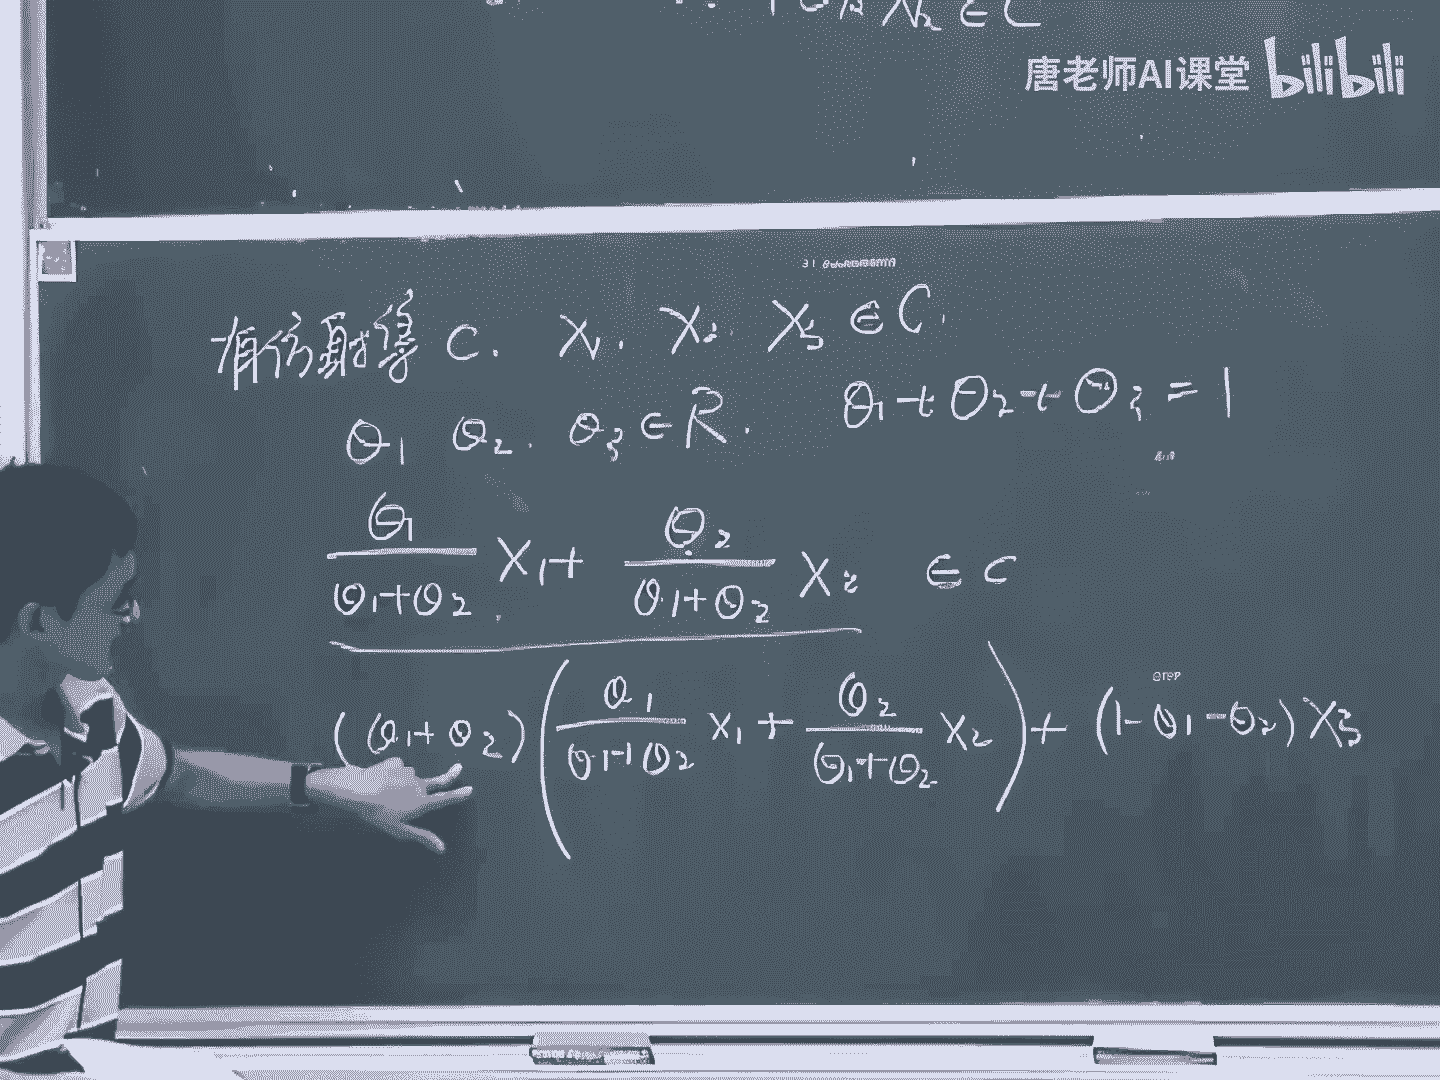 唐老师AI课堂 bilibili
有仿射集 C. X₁. X₂. X₃ ∈ C.
θ₁ θ₂. θ₃ ∈ R. θ₁+θ₂+θ₃ = 1
θ₁/(θ₁+θ₂) X₁ + θ₂/(θ₁+θ₂) X₂ ∈ C
(θ₁+θ₂)(θ₁/(θ₁+θ₂) X₁ + θ₂/(θ₁+θ₂) X₂) + (1-θ₁-θ₂) X₃